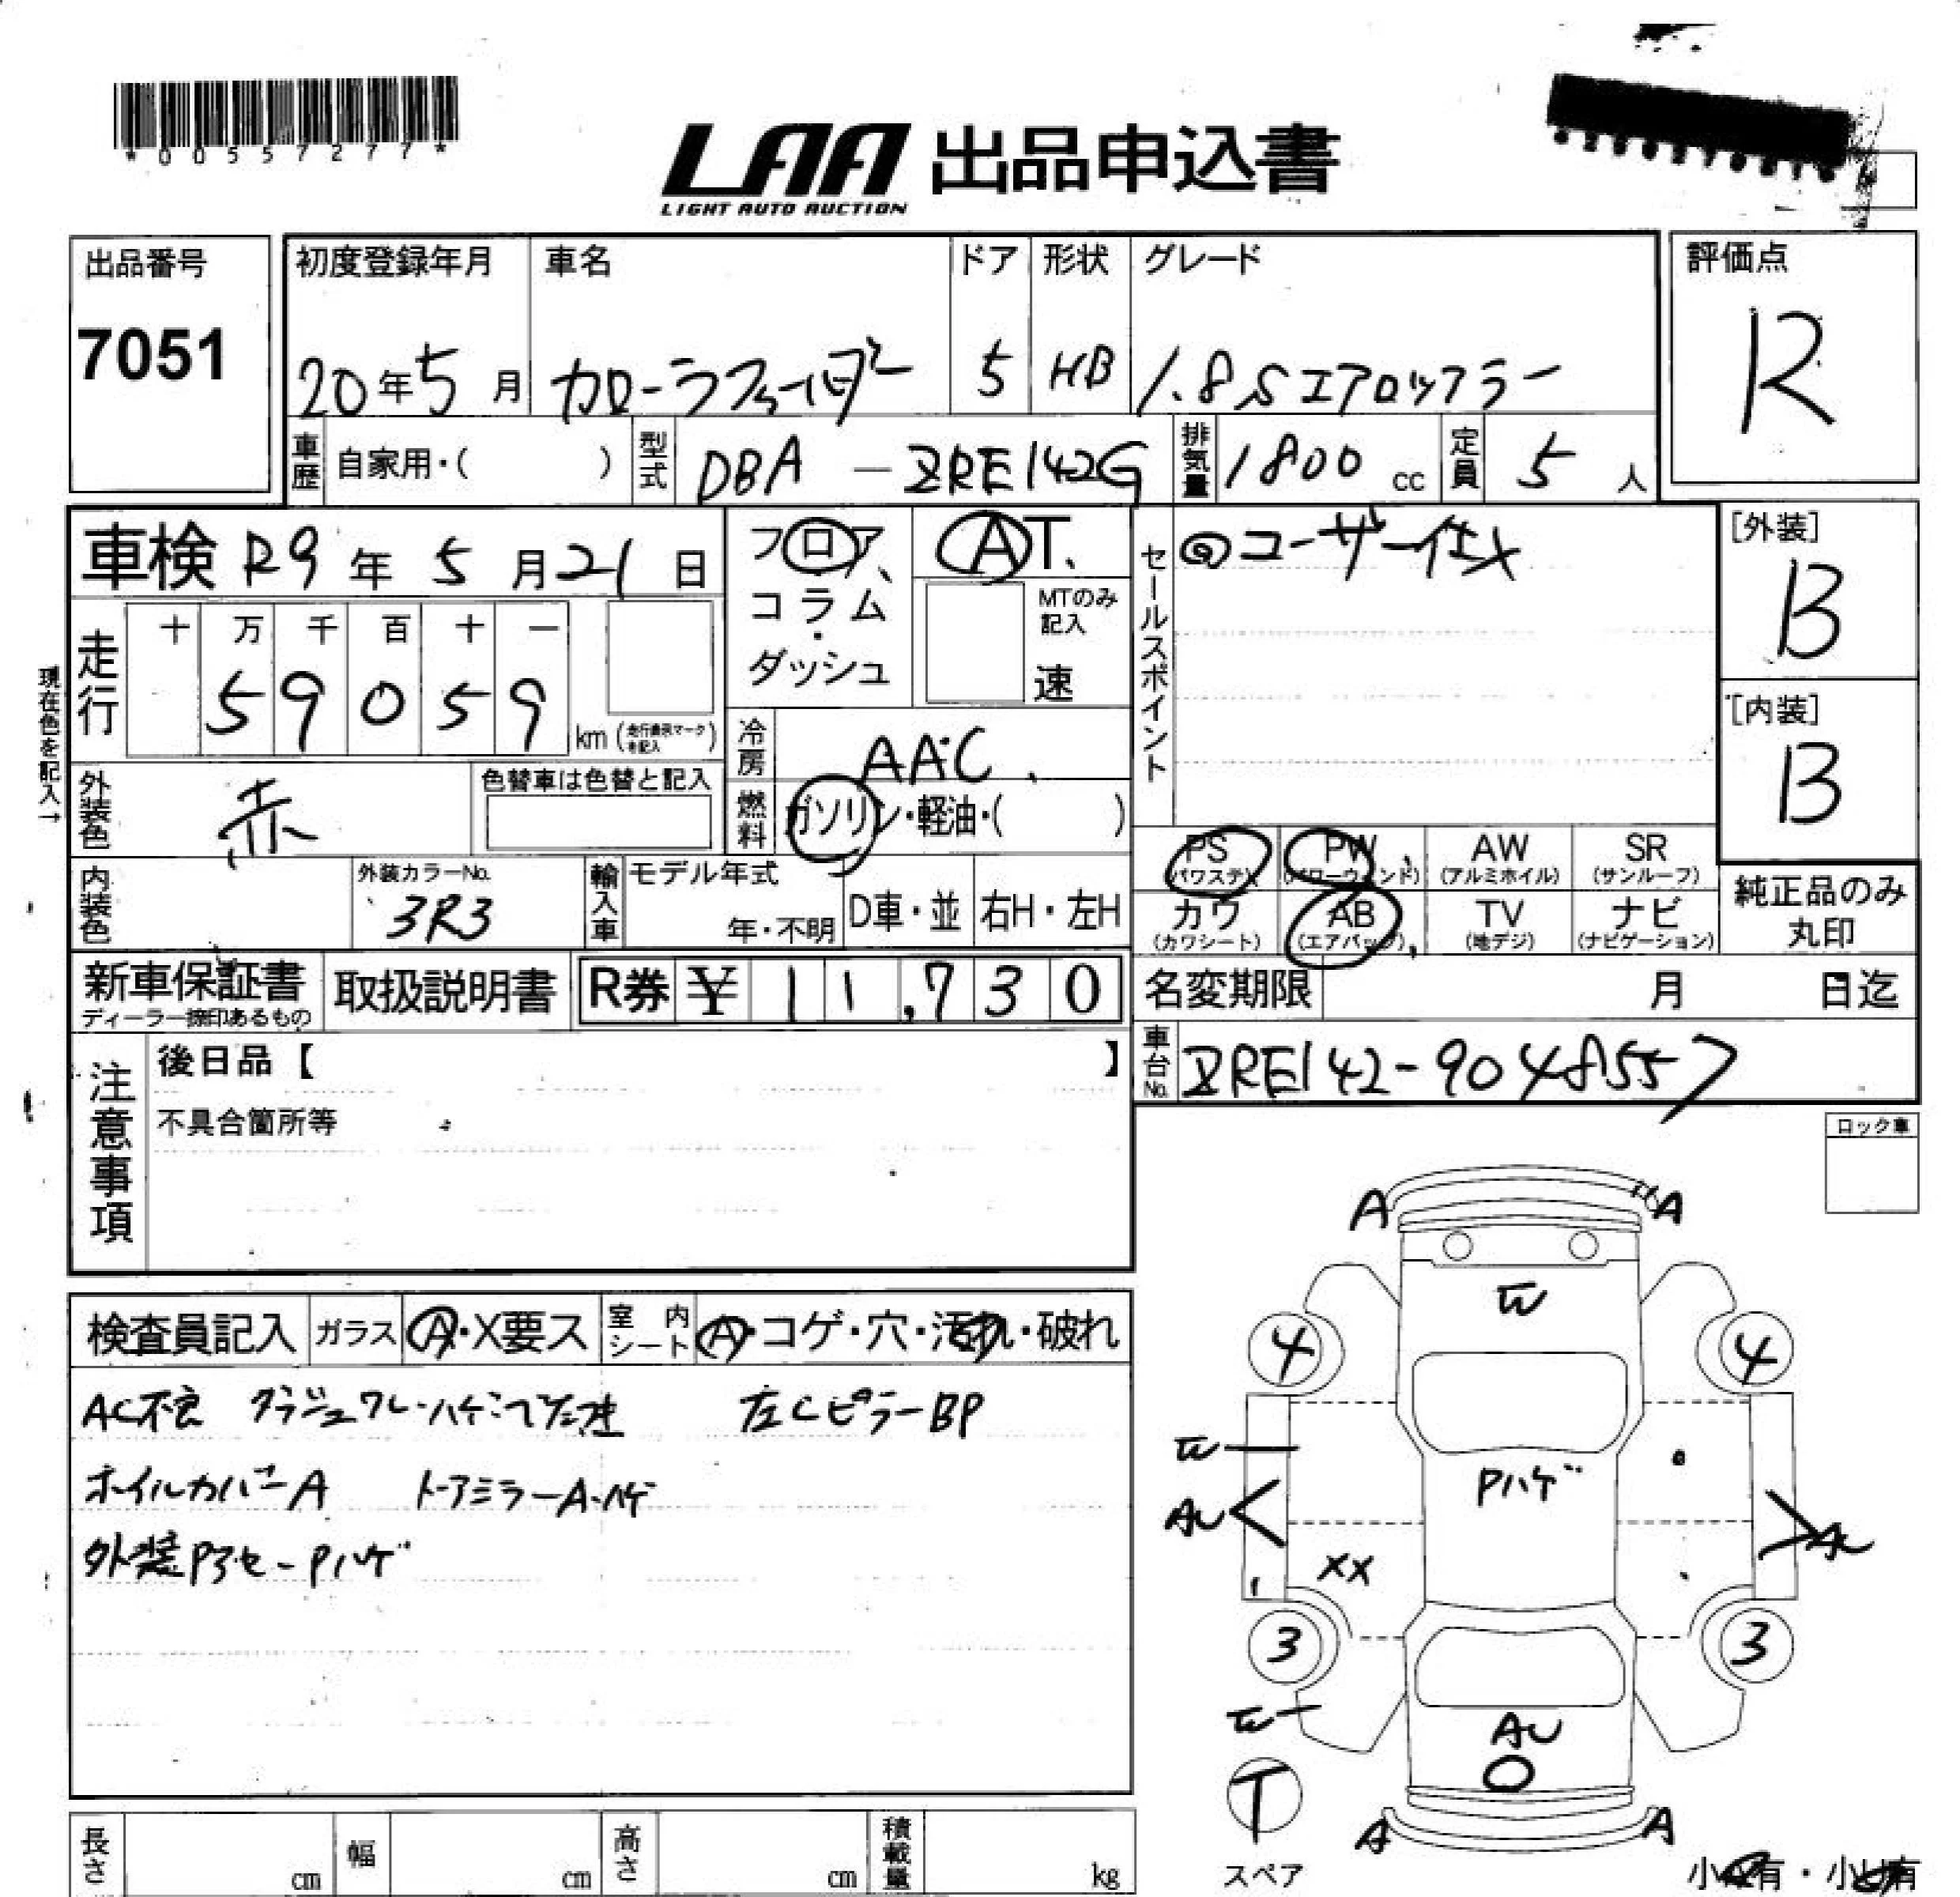 *00557277*
LAA 出品申込書
LIGHT AUTO AUCTION
出品番号
7051
初度登録年月
20年5月
車名
カローラフィールダー
ドア
5
形状
HB
グレード
1.8Sエアロツアラー
評価点
R
車歴
自家用・( )
型式
DBA-ZRE142G
排気量
1800cc
定員
5人
車検 R9年5月21日
フロア、
コラム
・
ダッシュ
AT、
MTのみ記入
速
セールスポイント
◎ユーザー仕入
[外装]
B
[内装]
B
現在色を記入→
走行
十 万 千 百 十 一
5 9 0 5 9
km(走行表示マークを記入)
冷房
AAC
燃料
ガソリン・軽油・( )
外装色
赤
色替車は色替と記入
内装色
外装カラーNo.
3R3
輸入車
モデル年式
年・不明
D車・並
右H・左H
PS
(パワステ)
PW
(パワーウィンド)
AW
(アルミホイル)
SR
(サンルーフ)
カワ
(カワシート)
AB
(エアバッグ)
TV
(地デジ)
ナビ
(ナビゲーション)
純正品のみ
丸印
新車保証書
ディーラー捺印あるもの
取扱説明書
R券 ¥ 11,730
名変期限 月 日迄
車台No.
ZRE142-9048557
注意事項
後日品【 】
不具合箇所等
ロック車
検査員記入
ガラス
A・X要ス
室内シート
A・コゲ・穴・汚れ・破れ
AC不良
左CピラーBP
ホイルカバーA
ドアミラーA・ハゲ
Pハゲ
A
A
W
4
4
W
AU
Pハゲ
AU
XX
3
3
W
AU
T
スペア
A
A
長さ cm
幅 cm
高さ cm
積載量 kg